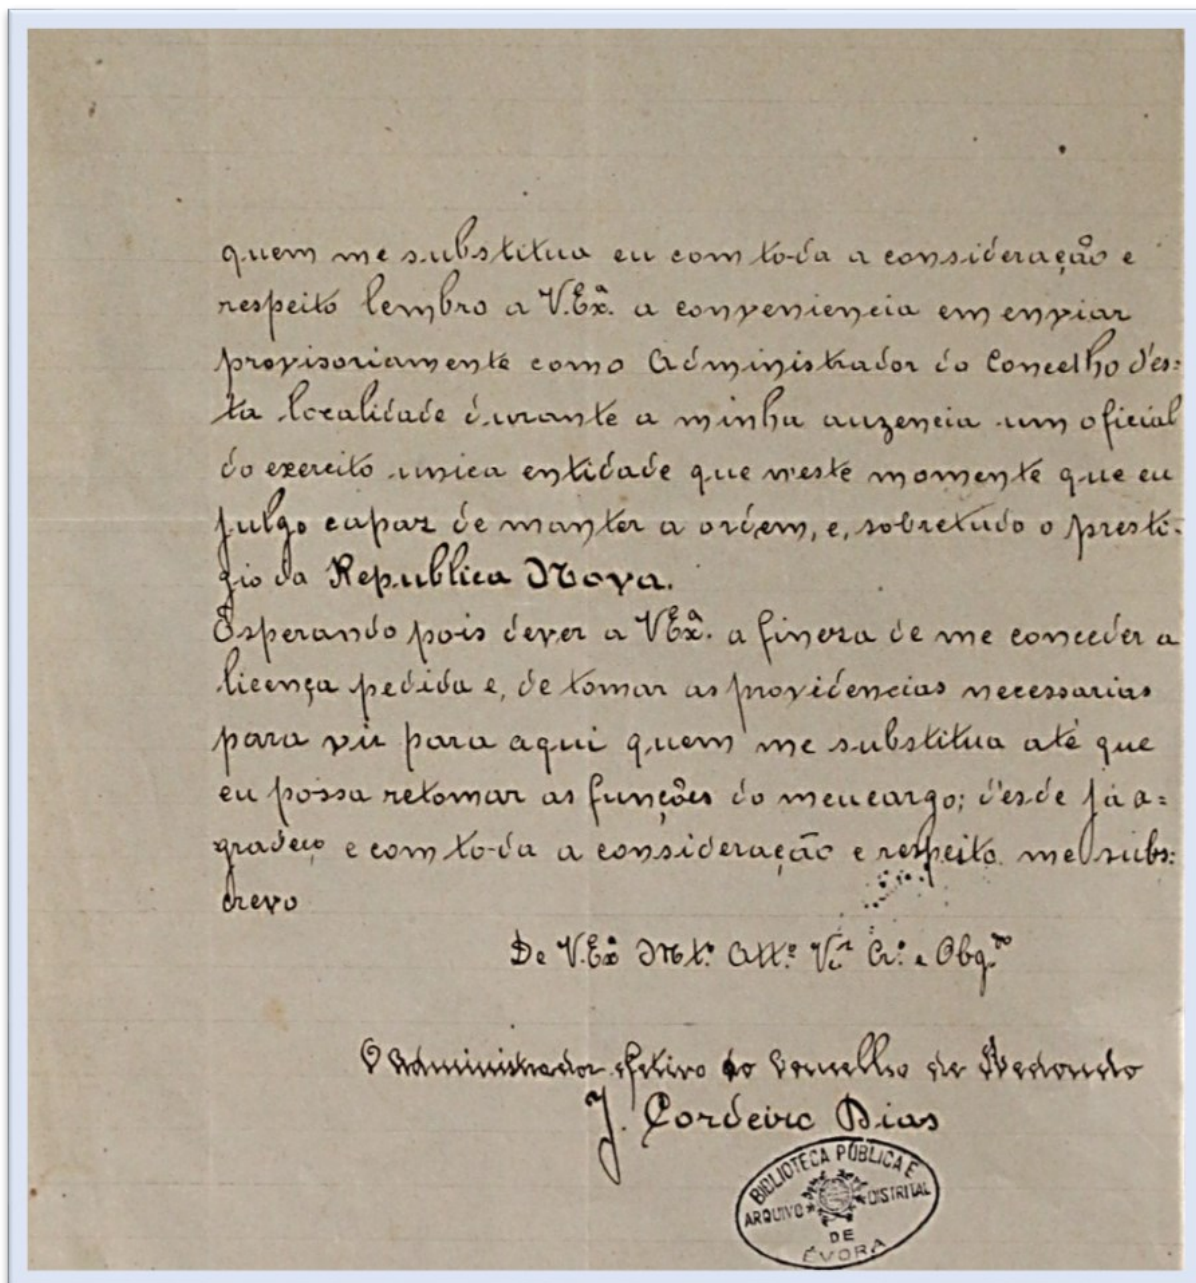 quem me substitua eu com toda a consideração e
respeito lembro a V.Exª. a conveniencia em enviar
provisoriamente como Administrador do Concelho d'es=
ta localidade durante a minha auzencia um oficial
do exercito unica entidade que n'este momente que eu
julgo capaz de manter a ordem, e, sobretudo o presti-
gio da Republica Nova.
Esperando pois dever a V.Exª. a fineza de me conceder a
licença pedida e, de tomar as providencias necessarias
para vir para aqui quem me substitua até que
eu possa retomar as funções do meu cargo; desde já a=
gradeço e com toda a consideração e respeito me subs=
crevo
De V.Exª Mtº. Attº. Vºr Crº. e Obgdº
O Administrador efetivo do Concelho de Redondo
J. Cordeiro Dias
BIBLIOTECA PÚBLICA E
ARQUIVO DISTRITAL
DE
ÉVORA